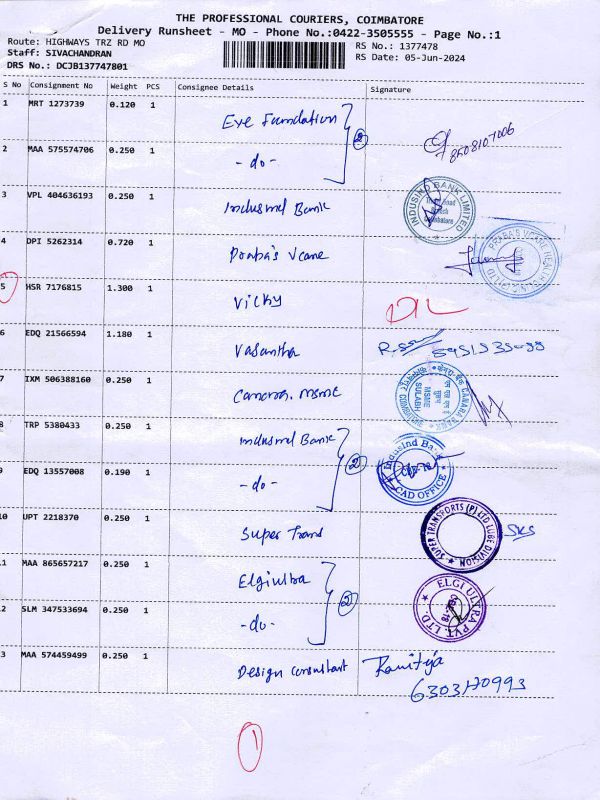 THE PROFESSIONAL COURIERS, COIMBATORE
Delivery Runsheet - MO - Phone No.:0422-3505555 - Page No.:1
Route: HIGHWAYS TRZ RD MO
RS No.: 1377478
Staff: SIVACHANDRAN
RS Date: 05-Jun-2024
DRS No.: DCJB137747801
S No Consignment No Weight PCS Consignee Details Signature
1 MRT 1273739 0.120 1 Eve Foundation
8508107006
2 MAA 575574706 0.250 1 -do- 2
3 VPL 404636193 0.250 1 Indusind Bank
INDUSIND BANK LIMITED
4 DPI 5262314 0.720 1 Praba's Vcare
PRABA'S VCARE HEALTH
5 HSR 7176815 1.300 1 Vicky DL
6 EDQ 21566594 1.180 1 Vasantha
7 IXM 506388160 0.250 1 Canara. msme
CANARA BANK
MSME
SULABH
8 TRP 5380433 0.250 1 Indusind Bank
9 EDQ 13557008 0.190 1 -do- 2
Indusind Bank
CAD OFFICE
10 UPT 2218370 0.250 1 Super Trans SKS
SUPER TRANSPORTS (P) LTD LUGE DIVISION
11 MAA 865657217 0.250 1 Elgi ultra
12 SLM 347533694 0.250 1 -do- 2
ELGI ULTRA PVT. LTD.
13 MAA 574459499 0.250 1 Design consultant
6303170993
1